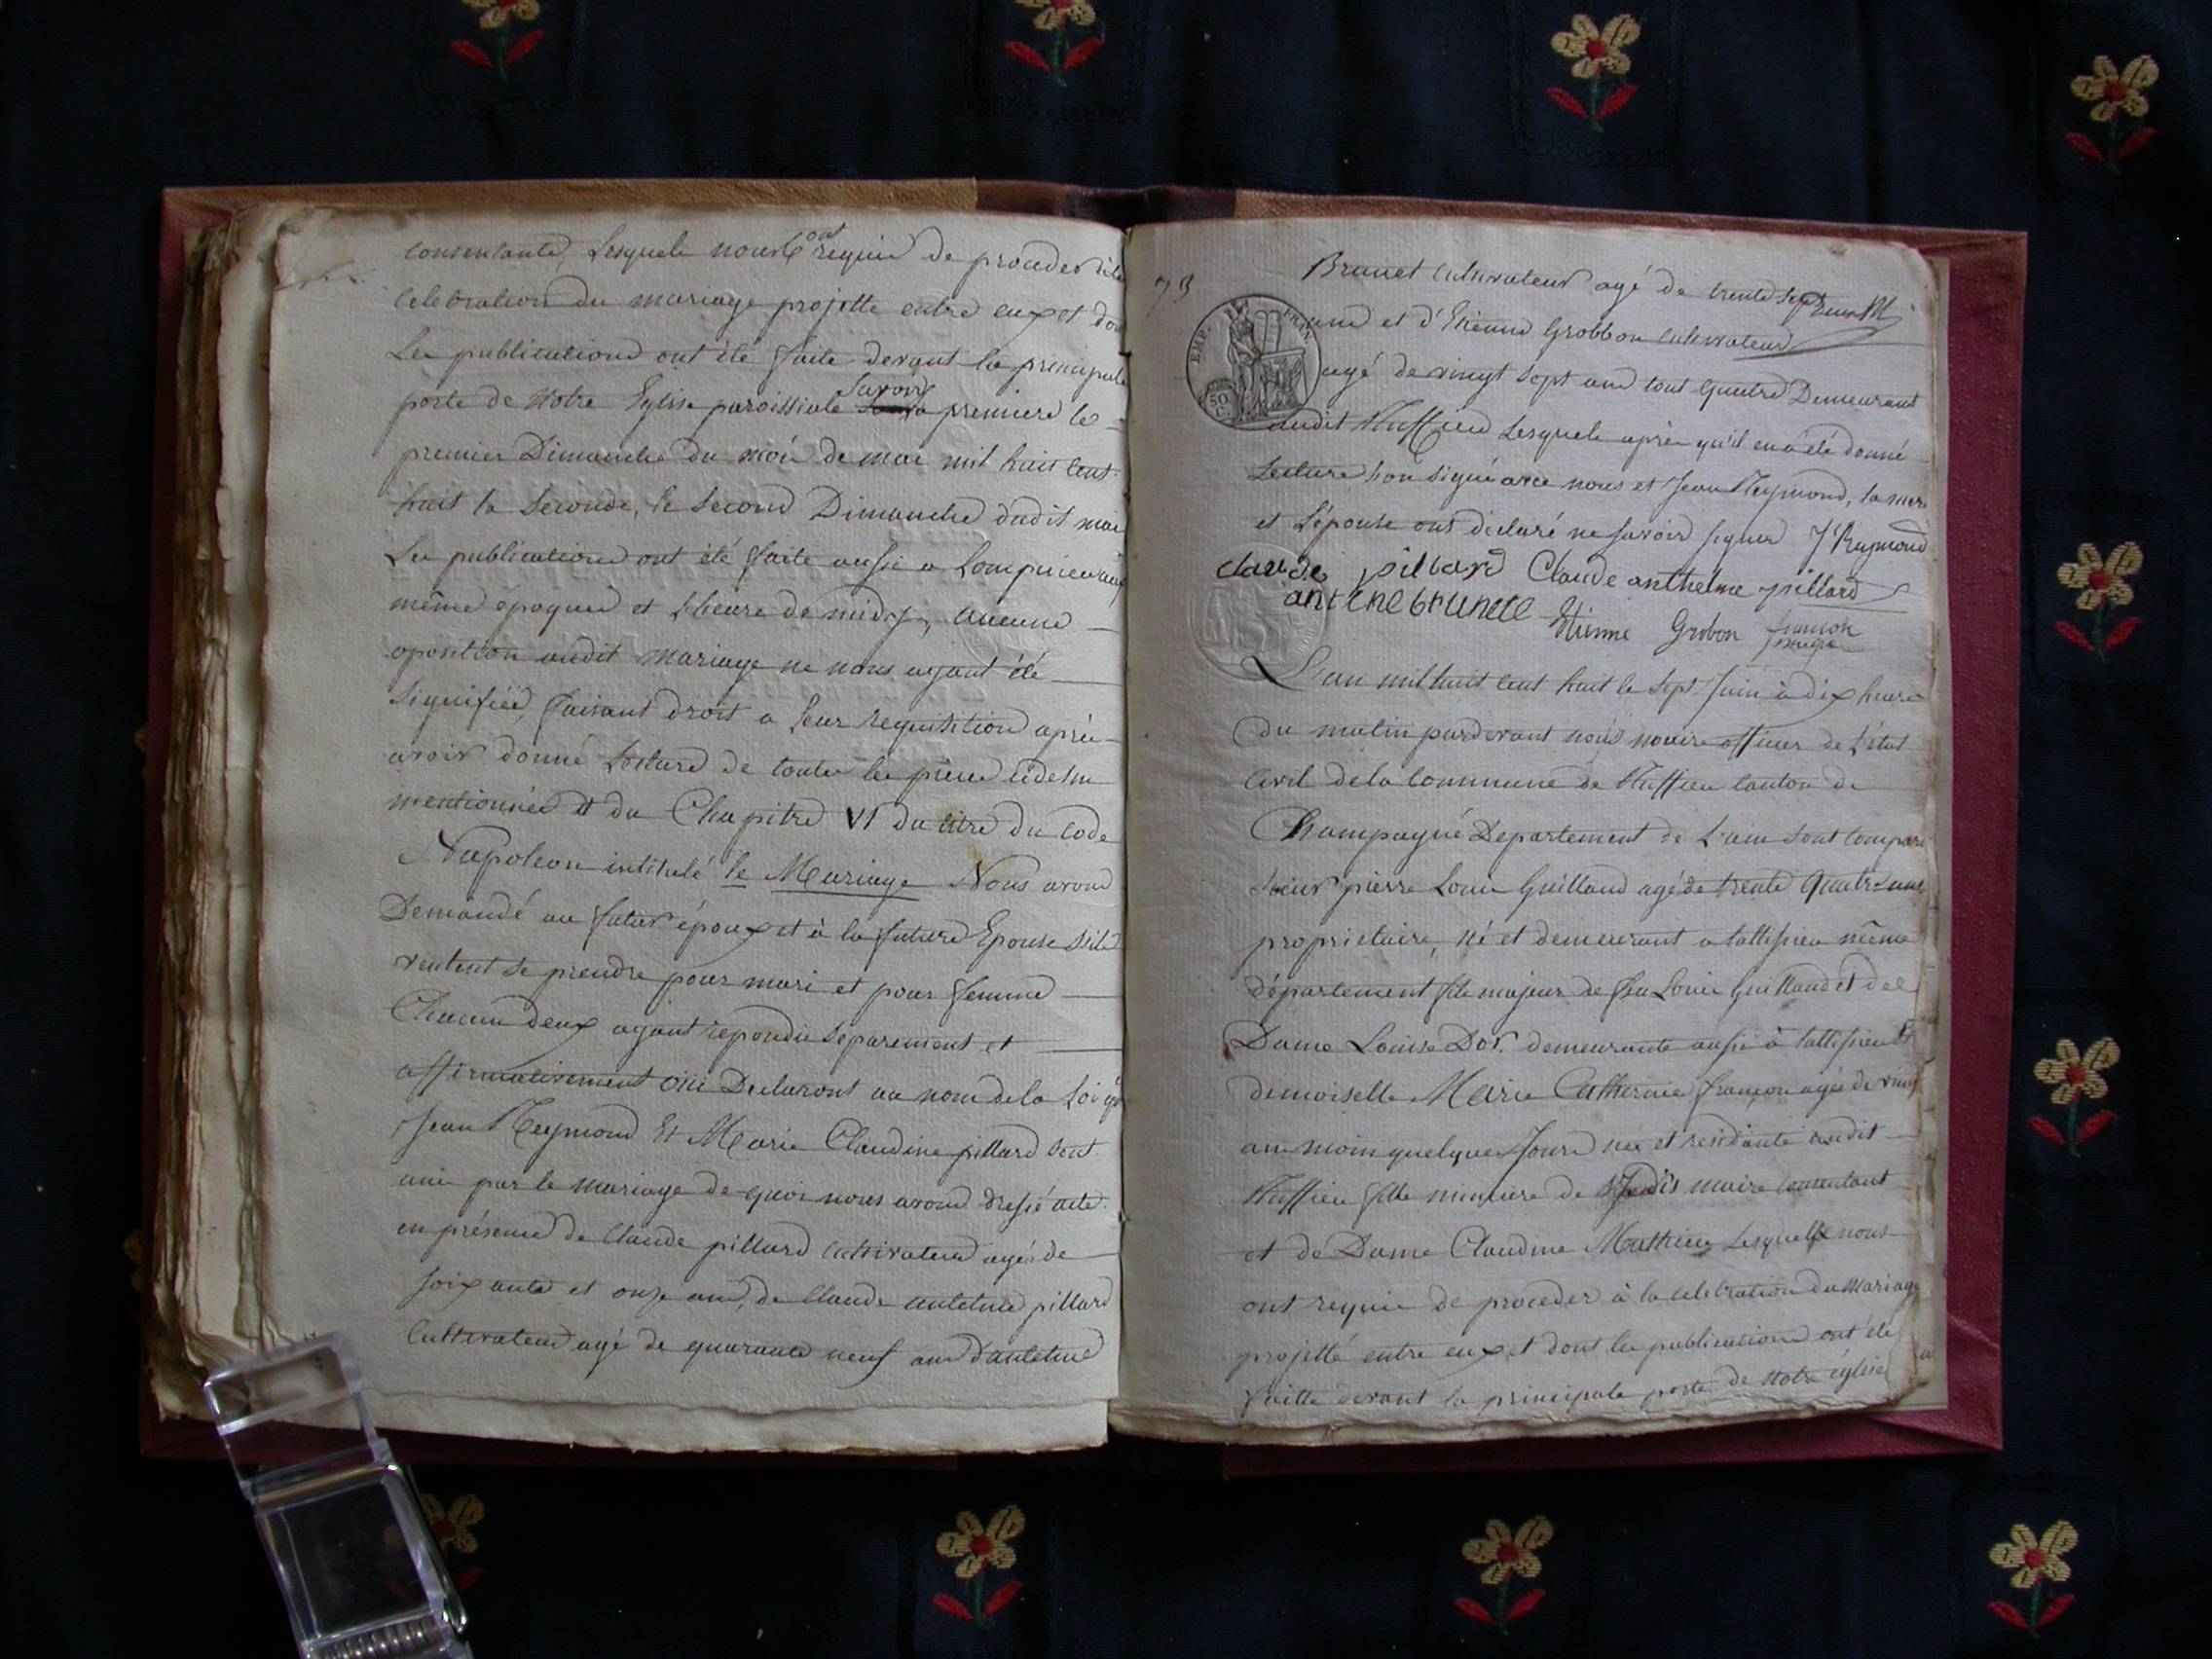 consentante, Lesquels nous ont requis de proceder à la
celebration du mariage projetté entre eux et dont
Les publications ont été faite devant la principale
porte de Notre Eglise paroissiale Savoir premiere le
premier Dimanche du mois de mai mil huit cent
huit la Seconde, le Second Dimanche dudit mai
Les publications ont été faite aussi a Lompnieu aux
même époques et Lheure de midy, aucune
oposition audit mariage ne nous ayant été
Signifiée, faisant droit a leur requisition après
avoir donné Lecture de toute les piece cidessus
mentionnées et du Chapitre VI du titre du Code
Napoleon intitulé le Mariage Nous avons
Demandé au futur époux et à la future Epouse s'ils
veulent se prendre pour mari et pour femme
Chacun deux ayant repondu separement et
affirmativement oui Declarons au nom de la Loi que
Jean Reymond Et Marie Claudine pillard sont
unis par le mariage de quoi nous avons dressé acte
en présence de Claude pillard cultivateur agés de
soixante et onze ans, de Claude antelme pillard
Cultivateur agé de quarante neuf ans d'antelme
73
Brunet cultivateur agé de trente sept
ans et d'Etienne Grobbon cultivateur
EMP. FRAN
agé de vingt sept ans tout quatre Demeurant
50 C.
audit Ruffieu Lesquels après qu'il en a été donné
Lecture l'on signé avec nous et Jean Reymond, la mere
et L'épouse ont déclaré ne savoir signer J Reymond
claude pillard Claude anthelme pillard
antelme brunete Etienne Grobon françon
L'an mil huit cent huit le sept Juin à dix heure
du matin pardevant nous maire officier de L'état
Civil de la Commune de Ruffieu canton de
Champagne Departement de L'ain sont comparu
sieur pierre Louis Guilland agé de trente quatre ans
proprietaire, né et demeurant a talissieu même
département fils majeur de feu Louis Guilland et de
Dame Louise Dor. demeurante aussi à talissieu Et
demoiselle Marie Catherine françon agée de vingt
ans moins quelques Jours née et residante audit
Ruffieu fille mineure de maire consentant
et de Dame Claudine Mathieu Lesquelle nous
ont requis de proceder à la celebration du Mariage
projetté entre eux et dont les publications ont été
faitte devant la principale porte de Notre église